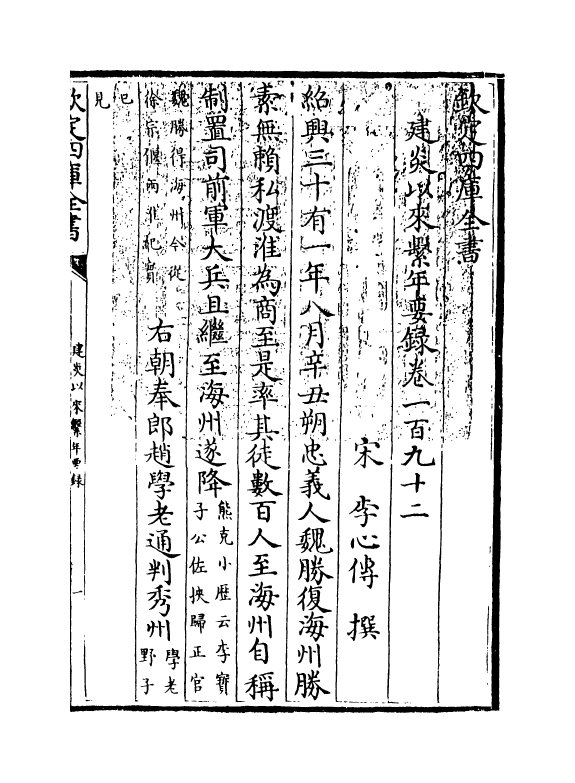 欽定四庫全書
建炎以來繫年要錄卷一百九十二
宋 李心傳 撰
紹興三十有一年八月辛丑朔忠義人魏勝復海州勝
素無賴私渡淮為商至是率其徒數百人至海州自稱
制置司前軍大兵且繼至海州遂降熊克小歷云李寶
子公佐挾歸正官
魏勝得海州今從
徐宗偃兩淮紀實右朝奉郎趙學老通判秀州學老
野子
已
見
欽定四庫全書
建炎以來繫年要錄
一